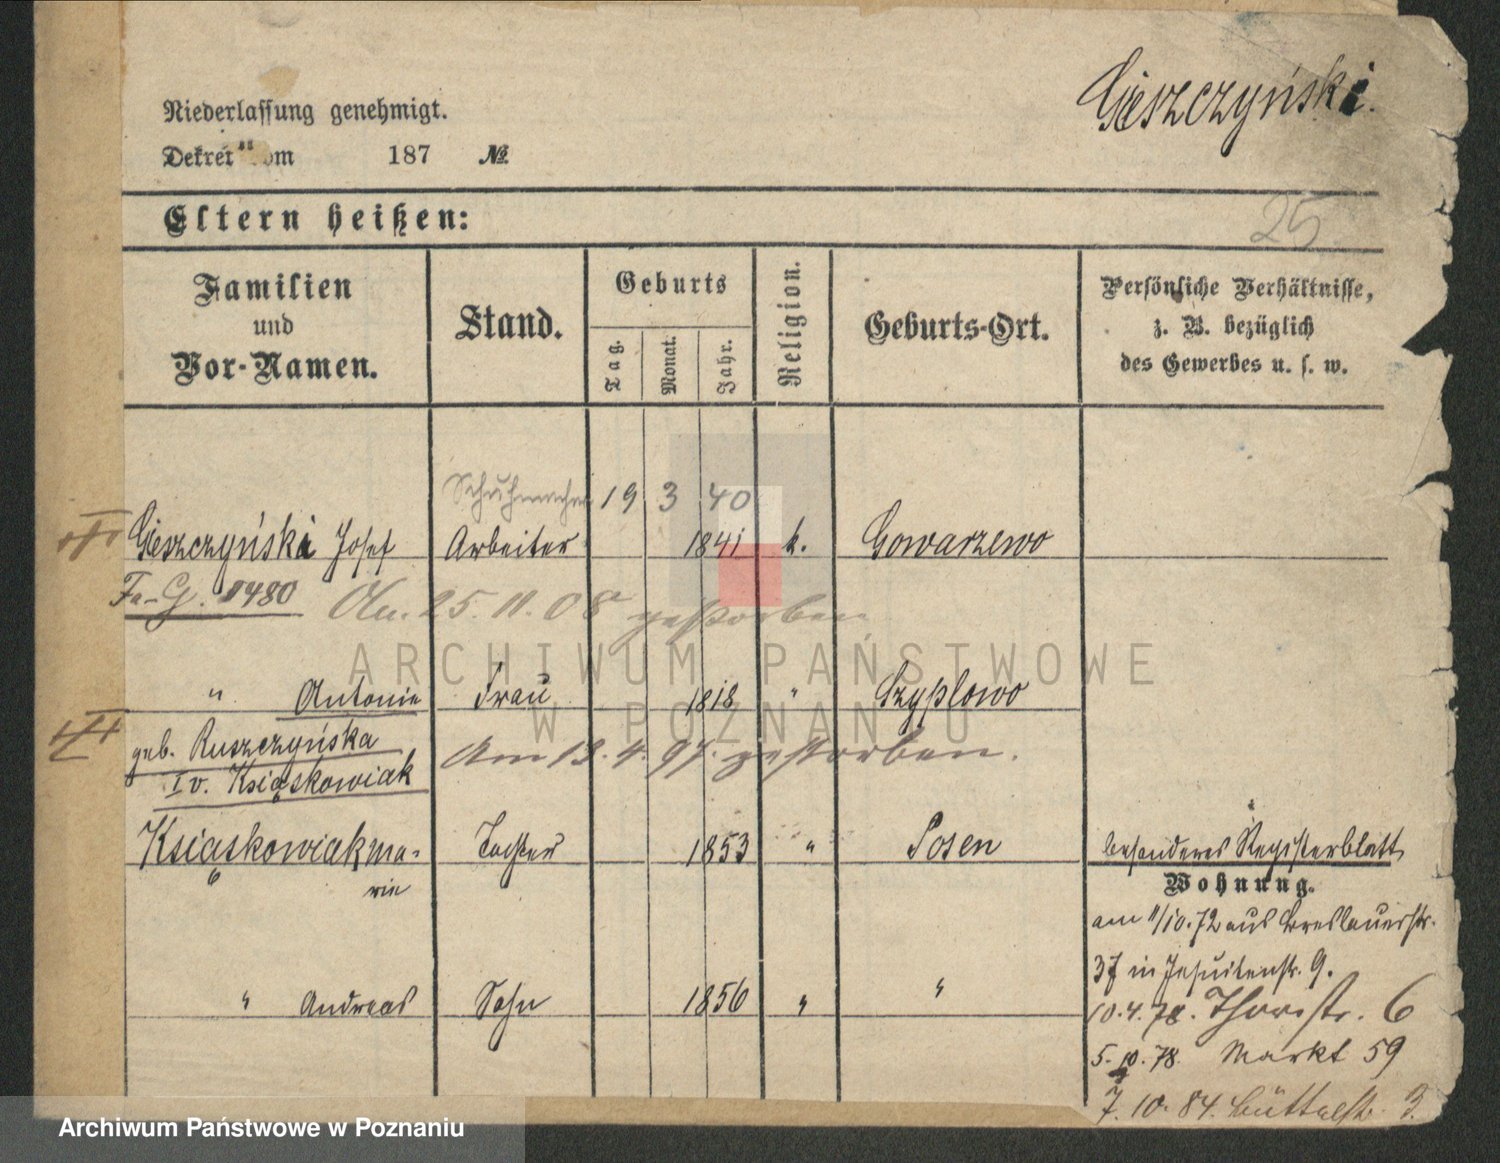 Gieszczyński.
Niederlassung genehmigt.
Dekret vom 187 №
25
Eltern heißen:
Familien und Vor-Namen.
Stand.
Geburts
Tag. Monat. Jahr.
Religion.
Geburts-Ort.
Persönliche Verhältnisse,
z. B. bezüglich
des Gewerbes u. s. w.
Schuhmacher 19 3 40
Gieszczyński Josef Arbeiter 1841 k. Gowarzewo
Fa-G. 1480 25. 11. 08 gestorben
" Antonie Frau 1818 " Czyplowo
geb. Ruszczyńska
Am 13. 4. 97. gestorben.
I v. Książkowiak
Książkowiak Ma- Tochter 1853 " Posen besonderes Registerblatt
rie
Wohnung.
am 11/10.72 aus Breslauerstr.
37 in Jesuitenstr. 9.
" Andreas Sohn 1856 " "
10.4.78. Thorstr. 6
5.10.78. Markt 59
7.10.84. Büttelstr. 3.
ARCHIWUM PAŃSTWOWE
W POZNANIU
Archiwum Państwowe w Poznaniu